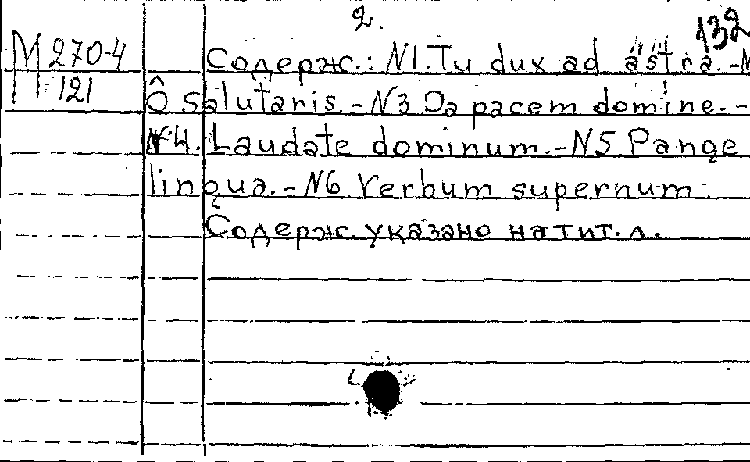 2.
132
М 270-4
121
Содерж.: N1. Tu dux ad astra.-N
Ô Salutaris.-N3 Da pacem domine.-
N4. Laudate dominum.-N5 Pange
lingua.-N6 Verbum supernum.
Содерж. указано на тит. л.